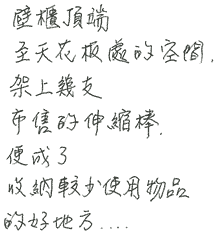 壁櫃頂端
至天花板處的空間,
架上幾支
市售的伸縮棒,
便成了
收納較少使用物品
的好地方....